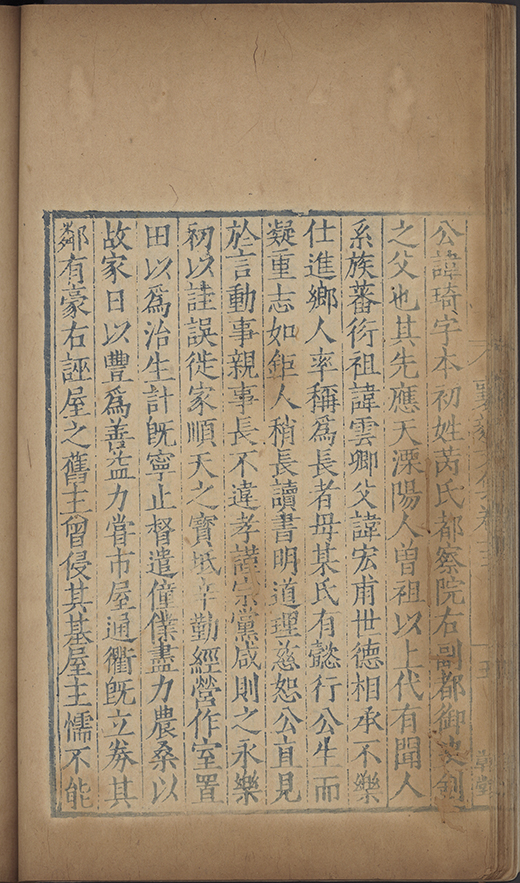 公諱琦字本初姓芮氏都察院右副都御史釗
之父也其先應天溧陽人曽祖以上代有聞人
系族蕃衍祖諱雲卿父諱宏甫世德相承不樂
仕進鄉人率稱爲長者母某氏有懿行公生而
凝重志如鉅人稍長讀書明道理慈恕公直見
於言動事親事長不違孝謹宗黨咸則之永樂
初以詿誤徙家順天之寳坻辛勤經營作室置
田以爲治生計旣寧止督遣僮僕盡力農桑以
故家日以豐爲善益力嘗市屋通衢旣立券其
鄰有豪右誣屋之舊主曾侵其基屋主懦不能